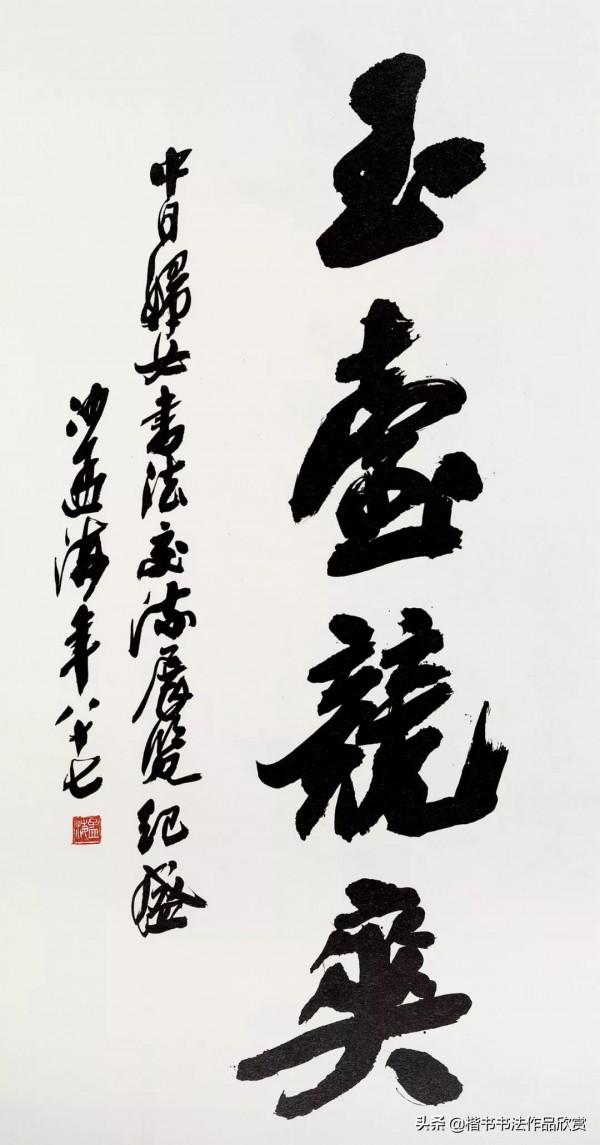 玉臺競爽
中日婦女書法交流展覽紀盛
沙孟海年八十七
孟海
头条 @楷书书法作品欣赏